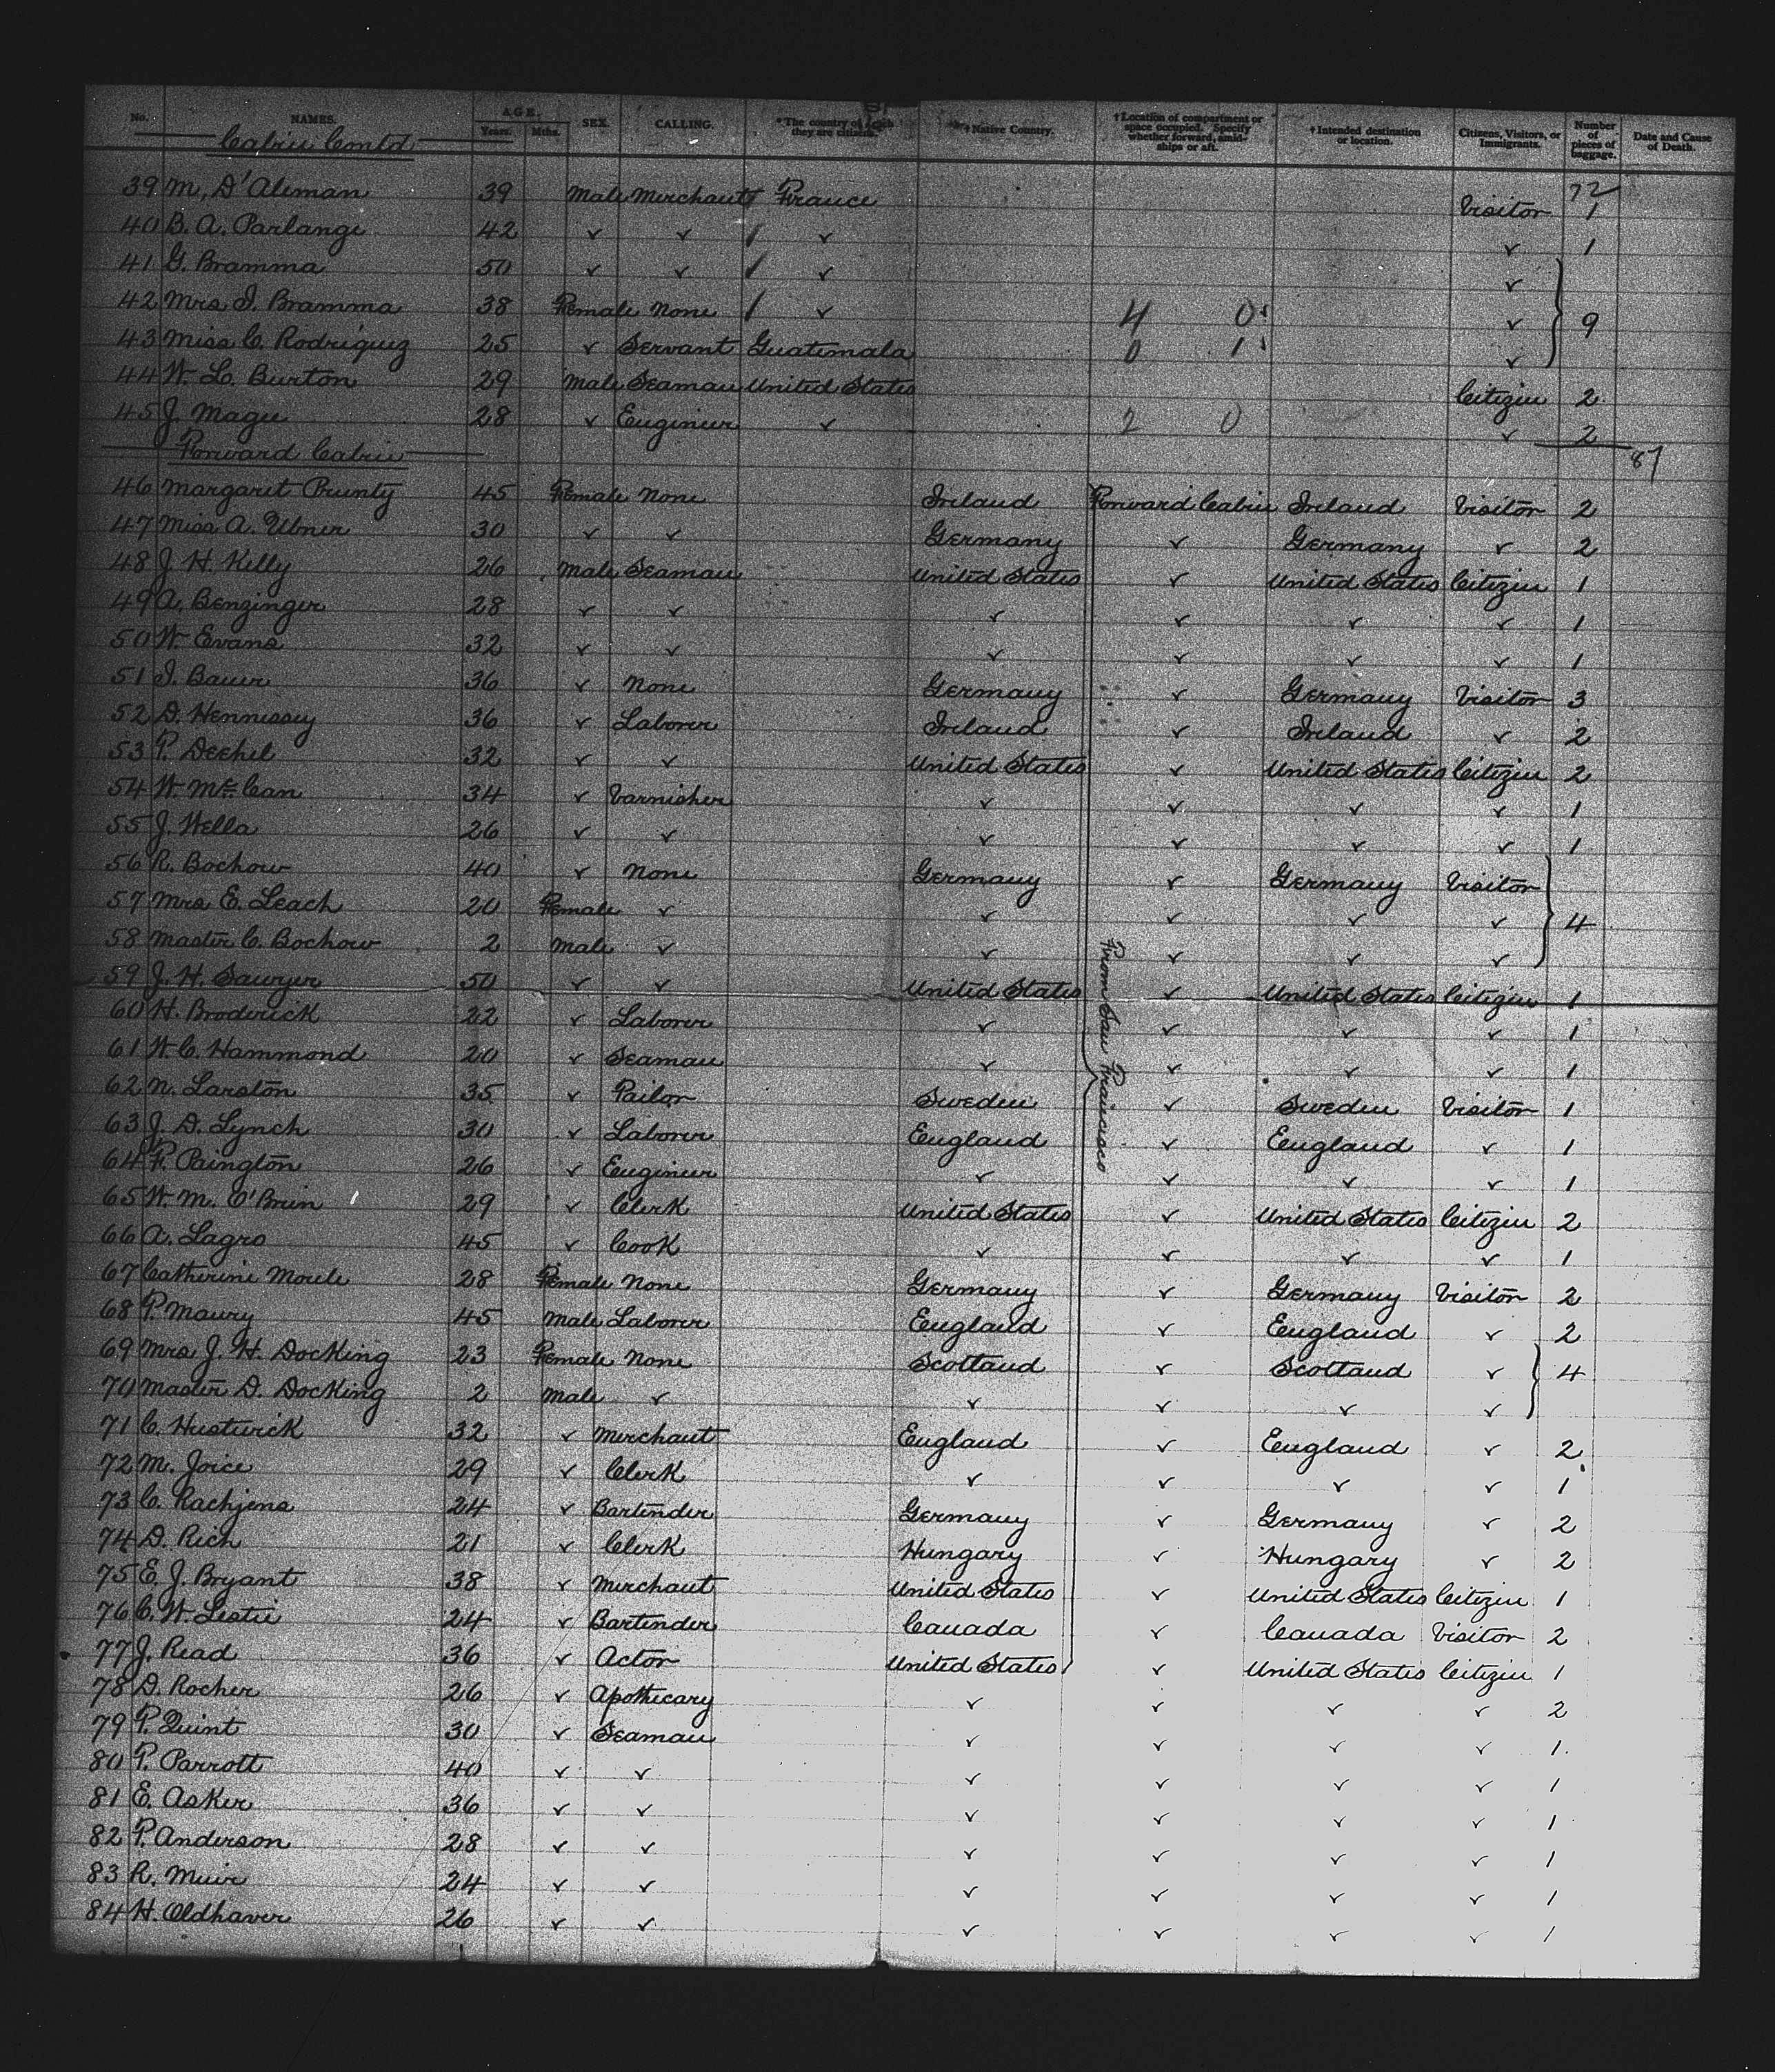 No. NAMES. AGE. Years. Mths. SEX. CALLING. *The country of which they are citizens. †Native Country. †Location of compartment or space occupied. Specify whether forward, amidships or aft. †Intended destination or location. Citizens, Visitors, or Immigrants. Number of pieces of baggage. Date and Cause of Death.
Cabin Contd
72
39 M, D'Aleman 39 Male Merchant France Visitor 1
40 B. A. Parlange 42 ✓ ✓ ✓ ✓ 1
41 G. Bramma 50 ✓ ✓ ✓ ✓
42 Mrs I. Bramma 38 Female None ✓ 4 0 ✓ 9
43 Miss C. Rodriguez 25 ✓ Servant Guatemala 0 1 ✓
44 W. Lo. Burton 29 Male Seaman United States Citizen 2
45 J. Magee 28 ✓ Engineer ✓ 2 0 ✓ 2
Forward Cabin 87
46 Margaret Prunty 45 Female None Ireland Forward Cabin Ireland Visitor 2
47 Miss A. Ubner 30 ✓ ✓ Germany ✓ Germany ✓ 2
48 J. H. Kelly 26 Male Seaman United States ✓ United States Citizen 1
49 A. Benzinger 28 ✓ ✓ ✓ ✓ ✓ ✓ 1
50 W. Evans 32 ✓ ✓ ✓ ✓ ✓ ✓ 1
51 I. Bauer 36 ✓ None Germany ✓ Germany Visitor 3
52 D. Hennessey 36 ✓ Laborer Ireland ✓ Ireland ✓ 2
53 P. Deehel 32 ✓ ✓ United States ✓ United States Citizen 2
54 W. McCan 34 ✓ Varnisher ✓ ✓ ✓ ✓ 1
55 J. Wella 26 ✓ ✓ ✓ ✓ ✓ ✓ 1
56 R. Bochow 40 ✓ None Germany ✓ Germany Visitor
57 Mrs E. Leach 20 Female ✓ ✓ ✓ ✓ ✓ 4
58 Master C. Bochow 2 Male ✓ ✓ ✓ ✓ ✓
59 J. H. Sawyer 50 ✓ ✓ United States ✓ United States Citizen 1
60 H. Broderick 22 ✓ Laborer ✓ ✓ ✓ ✓ 1
61 W. C. Hammond 20 ✓ Seaman ✓ ✓ ✓ ✓ 1
From San Francisco
62 N. Larston 35 ✓ Tailor Sweden ✓ Sweden Visitor 1
63 J. D. Lynch 30 ✓ Laborer England ✓ England ✓ 1
64 F. Paington 26 ✓ Engineer ✓ ✓ ✓ ✓ 1
65 W. M. O'Brien 29 ✓ Clerk United States ✓ United States Citizen 2
66 A. Lagro 45 ✓ Cook ✓ ✓ ✓ ✓ 1
67 Catherine Moule 28 Female None Germany ✓ Germany Visitor 2
68 P. Maury 45 Male Laborer England ✓ England ✓ 2
69 Mrs J. H. Docking 23 Female None Scotland ✓ Scotland ✓ 4
70 Master D. Docking 2 Male ✓ ✓ ✓ ✓ ✓
71 C. Hustwick 32 ✓ Merchant England ✓ England ✓ 2
72 M. Joice 29 ✓ Clerk ✓ ✓ ✓ ✓ 1
73 C. Rachjens 24 ✓ Bartender Germany ✓ Germany ✓ 2
74 D. Rich 21 ✓ Clerk Hungary ✓ Hungary ✓ 2
75 E. J. Bryant 38 ✓ Merchant United States ✓ United States Citizen 1
76 C. W. Leslie 24 ✓ Bartender Canada ✓ Canada Visitor 2
77 J. Read 36 ✓ Actor United States ✓ United States Citizen 1
78 D. Rocher 26 ✓ Apothecary ✓ ✓ ✓ ✓ 2
79 P. Quint 30 ✓ Seaman ✓ ✓ ✓ ✓ 1
80 P. Parrott 40 ✓ ✓ ✓ ✓ ✓ ✓ 1
81 E. Asker 36 ✓ ✓ ✓ ✓ ✓ ✓ 1
82 P. Anderson 28 ✓ ✓ ✓ ✓ ✓ ✓ 1
83 R. Muir 24 ✓ ✓ ✓ ✓ ✓ ✓ 1
84 H. Oldhaver 26 ✓ ✓ ✓ ✓ ✓ ✓ 1